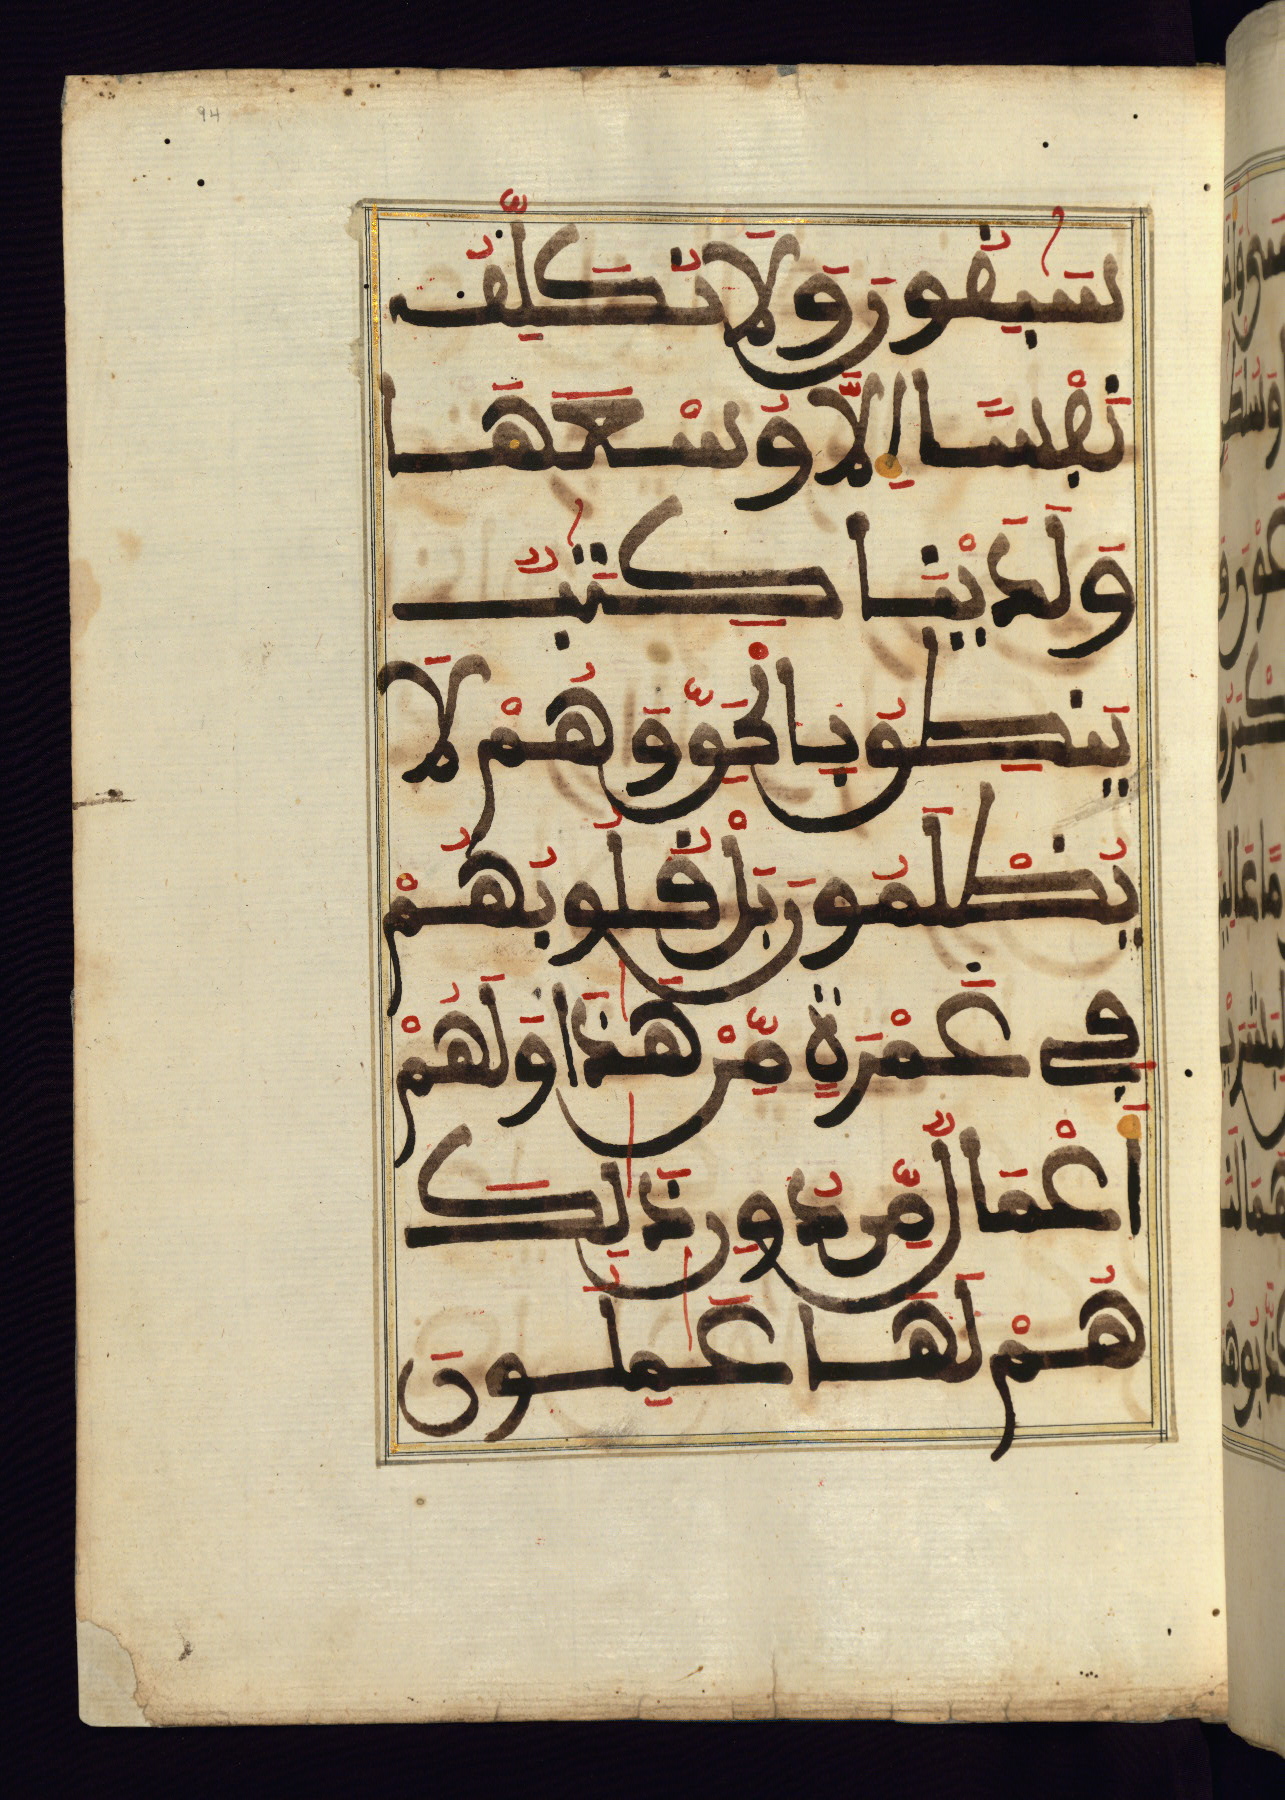 94
سَٰبِقُونَ وَلَا نُكَلِّفُ
نَفْسًا اِلَّا وُسْعَهَا
وَلَدَيْنَا كِتَٰبٌ
يَنطِقُ بِالْحَقِّ وَهُمْ لَا
يُظْلَمُونَ بَلْ قُلُوبُهُمْ
فِي غَمْرَةٍ مِّنْ هَٰذَا وَلَهُمْ
أَعْمَٰلٌ مِّن دُونِ ذَٰلِكَ
هُمْ لَهَا عَٰمِلُونَ